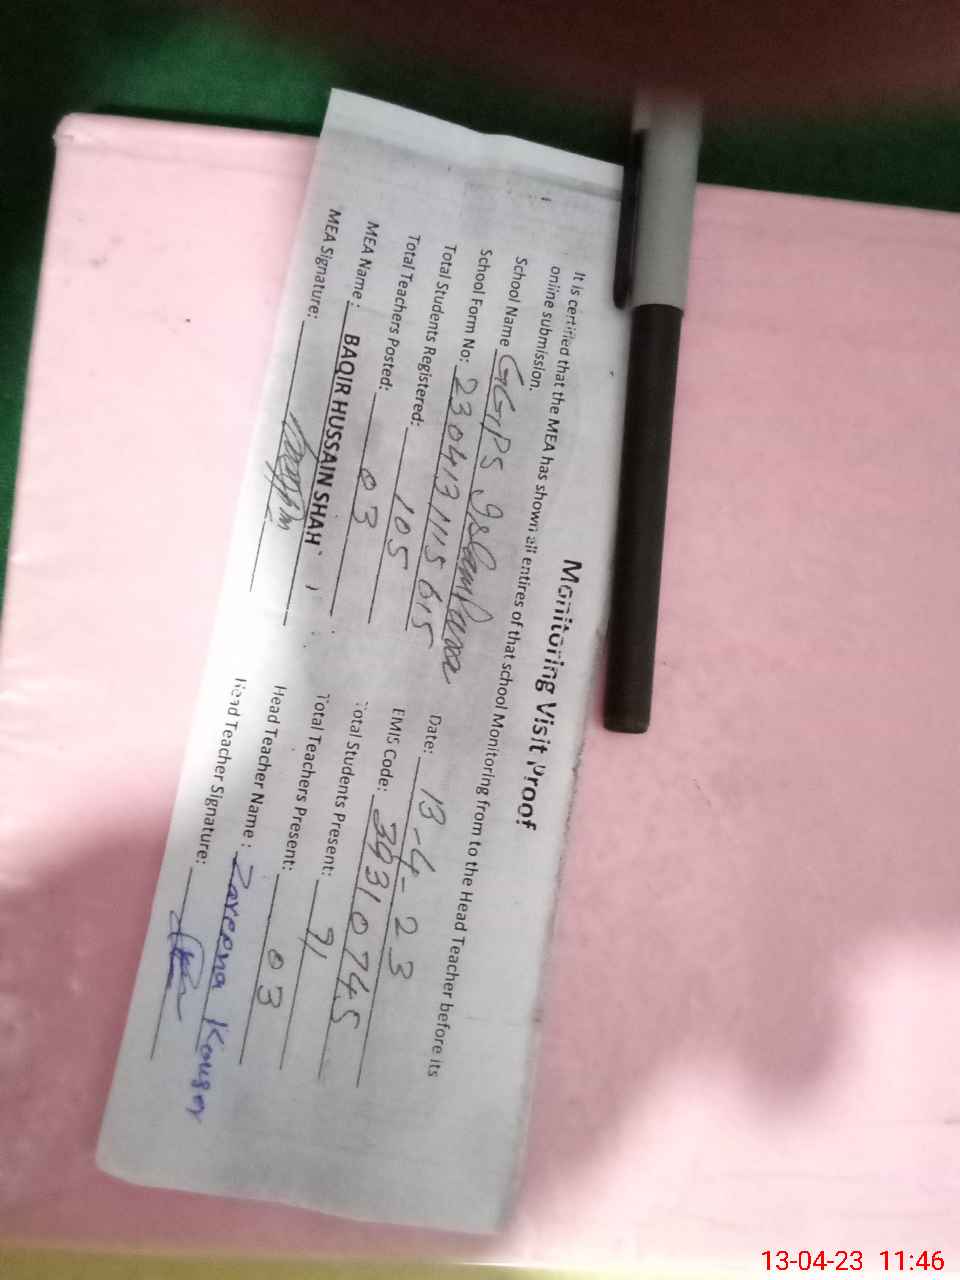 Monitoring Visit Proof
It is certified that the MEA has shown all entires of that school Monitoring from to the Head Teacher before its
online submission.
School Name GGPS Islampura Date: 13-4-23
School Form No: 2304131115615 EMIS Code: 39310745
Total Students Registered: 105 Total Students Present: 91
Total Teachers Posted: 03 Total Teachers Present: 03
MEA Name: BAQIR HUSSAIN SHAH Head Teacher Name: Zareena Kousar
MEA Signature: Head Teacher Signature:
13-04-23 11:46